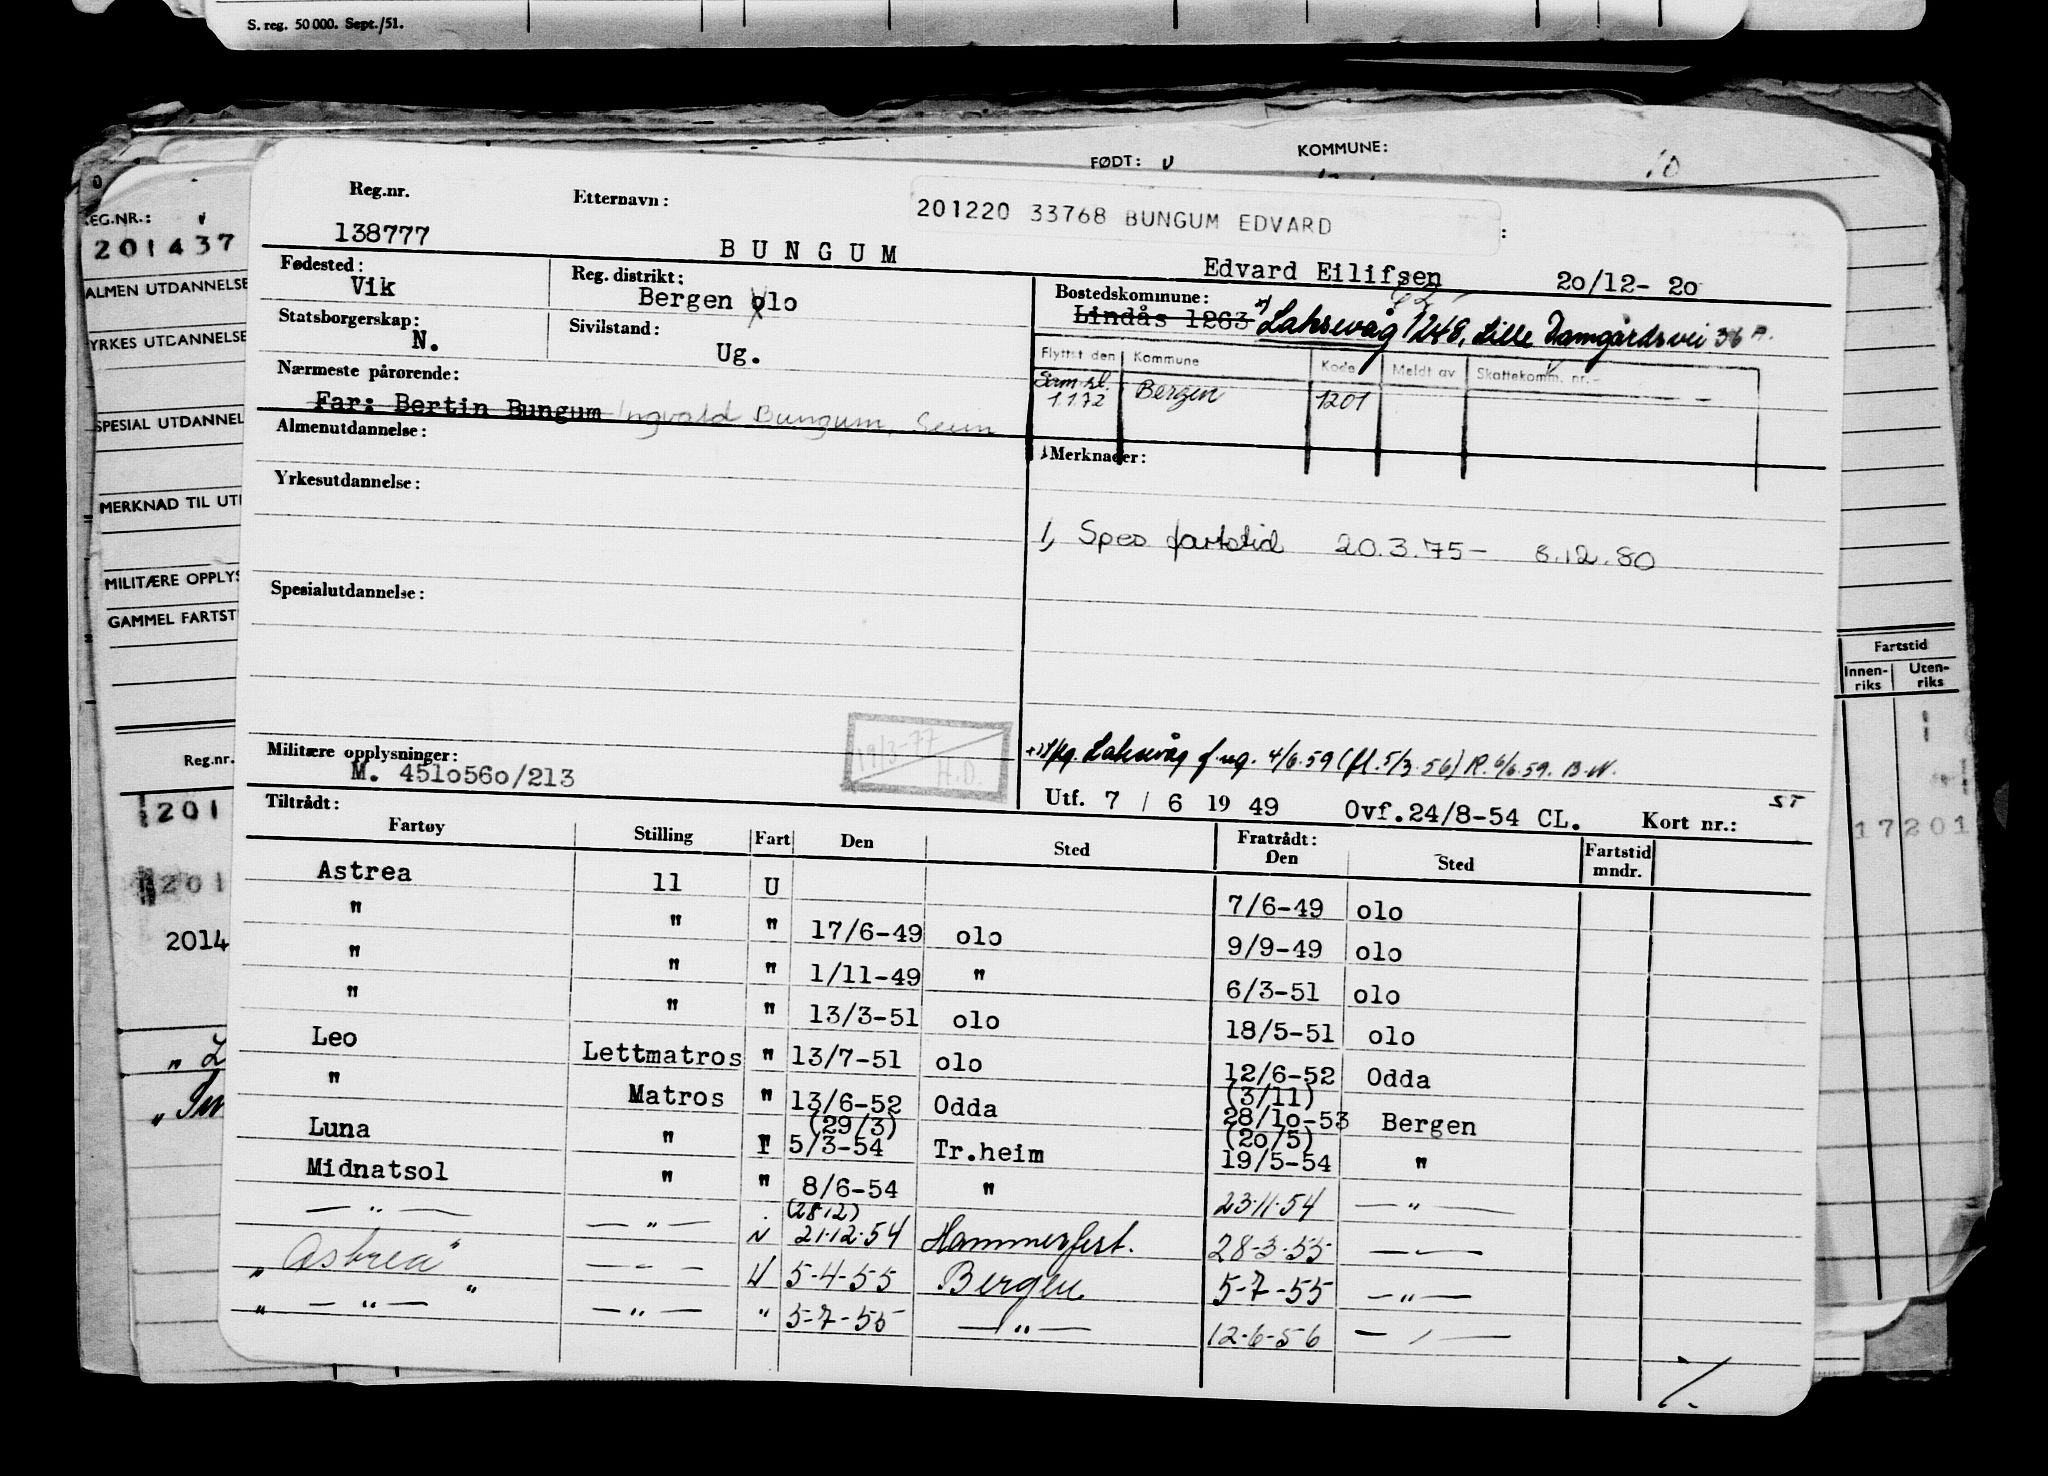 S. reg. 50 000. Sept./51.
FØDT: KOMMUNE:
REG.NR.:
201437
ALMEN UTDANNELSE
YRKES UTDANNELSE
SPESIAL UTDANNEL
MERKNAD TIL UT
MILITÆRE OPPLYS
GAMMEL FARTST
Reg.nr.
201
201
2014
Fartstid
Innen-riks Uten-riks
17201
Reg.nr. Etternavn: 201220 33768 BUNGUM EDVARD :
138777 BUNGUM Edvard Eilifsen 20/12- 20
Fødested: Reg. distrikt: Bostedskommune:
Vik Bergen olo Lindås 1263 Laksevåg 1248, Lille Damgårdsvei 36 A.
Statsborgerskap: Sivilstand:
N. Ug.
Flyttet den Kommune Kode Meldt av Skattekomm. nr.
Sam.sl. 1.1.72 Bergen 1201
Nærmeste pårørende:
Far: Bertin Bungum Ingvald Bungum, Seim
Almenutdannelse: Merknader:
Yrkesutdannelse:
1, Spes fartstid 20.3.75- 8.12.80
Spesialutdannelse:
19/3-77 H.D.
Militære opplysninger:
M. 4510560/213
Laksevåg f.reg. 4/6.59 (fl. 5/3.56) R. 6/6.59. B.N.
Utf. 7 / 6 19 49 Ovf.24/8-54 CL. Kort nr.: ST
Tiltrådt: Fratrådt:
Fartøy Stilling Fart Den Sted Den Sted Fartstid mndr.
Astrea 11 U 7/6-49 olo
" " " 17/6-49 olo 9/9-49 olo
" " " 1/11-49 " 6/3-51 olo
" " " 13/3-51 olo 18/5-51 olo
Leo Lettmatros " 13/7-51 olo 12/6-52 Odda
" Matros " 13/6-52 Odda (3/11) 28/10-53 Bergen
Luna " I (29/3) 5/3-54 Tr.heim (20/5) 19/5-54 "
Midnatsol " " 8/6-54 " 23.11.54 — " —
— " — — " — N (28.12) 21.12.54 Hammerfest. 28-3-55 — —
" Astrea " — " — U 5-4-55 Bergen 5-7-55 — " —
" — " — " — " — " 5-7-55 — " — 12-6-56 — " —